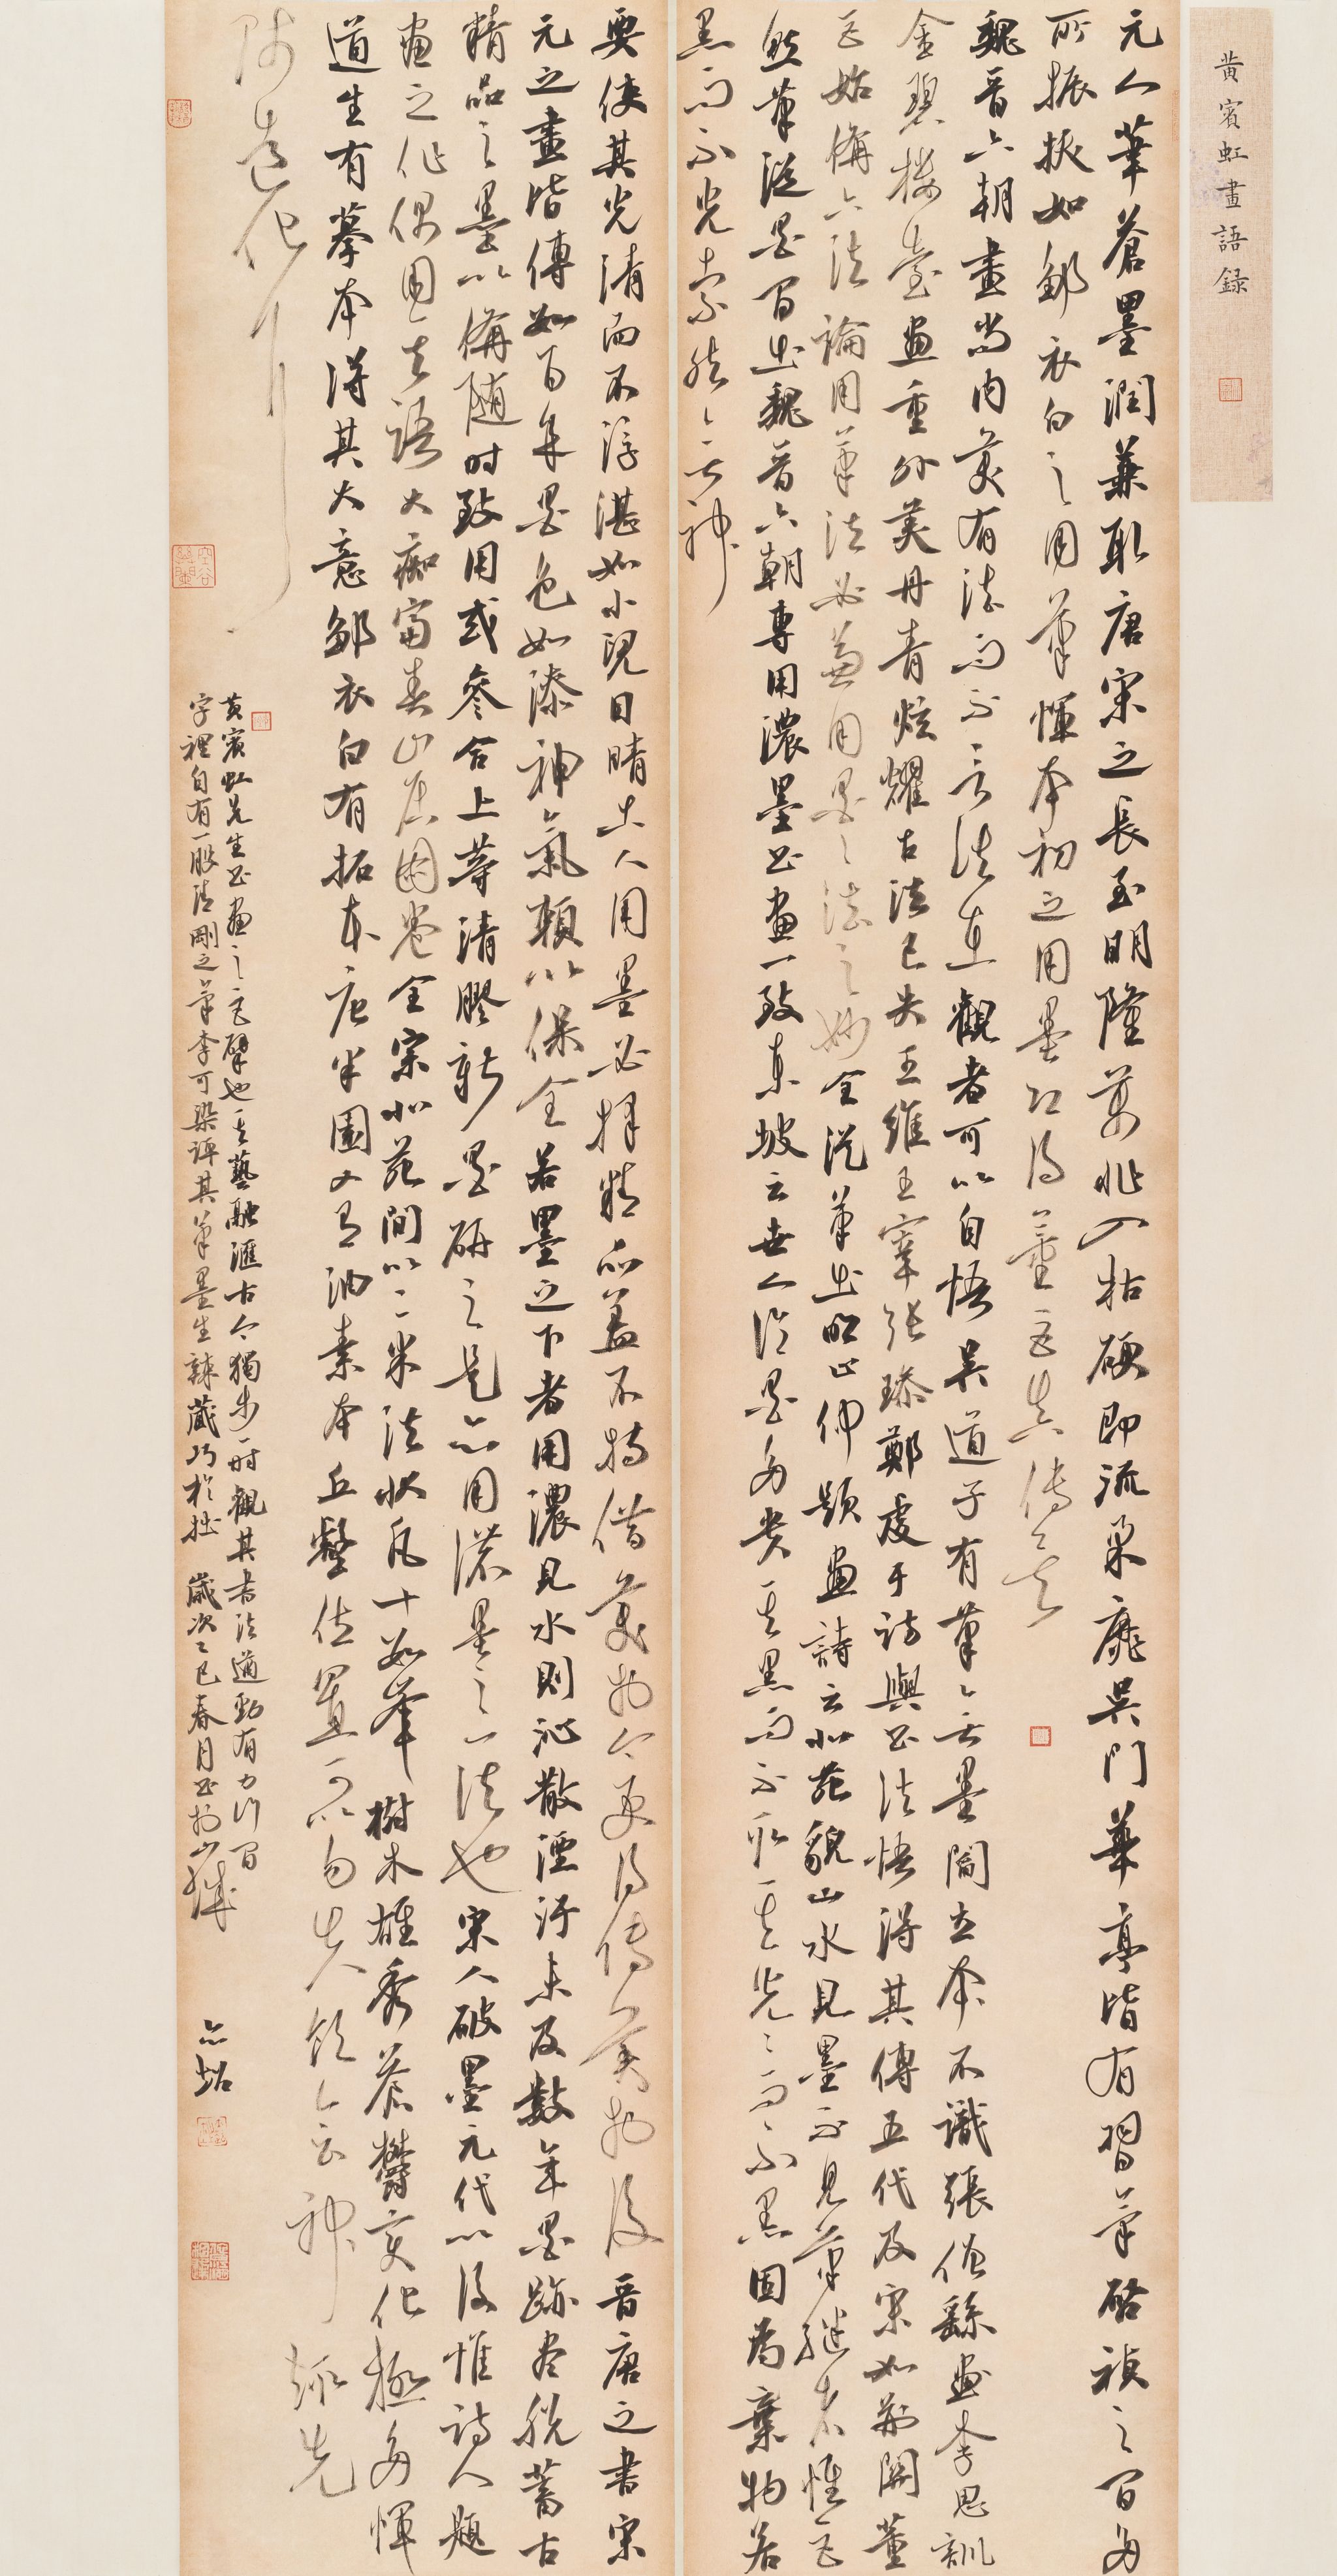 黄賓虹畫語録
元人筆蒼墨潤兼取唐宋之長至明隆萬非入枯硬即流巢靡吳門華亭皆有習筆啓禎之間多
所振拔如鄒衣白之用筆惲本初之用墨功深董巨真傳之
魏晋六朝畫尚内美有法而不言法在觀者可以自悟吳道子有筆無墨閻立本不識張僧繇畫李思訓
金碧樓臺畫重外美丹青炫耀古法已失王維王宰張璪鄭虔于詩與書法悟得其傳五代及宋如荆關董
巨始備六法論用筆法必兼用墨墨法之妙全從筆出明止仲題畫詩云北苑貌山水見墨不見筆繼者惟巨
然筆從墨間出魏晋六朝專用濃墨書畫一致東坡云世人論墨多貴其黑而不取其光光而不黑固爲棄物若
黑而不光索然無神
要使其光清而不浮湛如小兒目睛古人用墨必擇精品蓋不特借美於今更得傳美於後晋唐之書宋
元之畫皆傳如百年墨色如漆神氣賴以保全若墨之下者用濃見水則沁散湮汙未及數年墨跡盡脱蓄古
精品之墨以備隨時致用或參合上等清膠新墨研之是亦用濃墨之一法也宋人破墨元代以後惟詩人題
畫之作偶用其語大痴富春山居圖卷全宗北苑間以二米法狀凡十如峯樹木雄秀蒼鬱變化極多惲
道生有摹本得其大意鄒衣白有拓本唐半園又有油素本丘壑位置可以勿失筆法神趣先
隨造化行
黄賓虹先生書畫之巨擘也其藝融匯古今獨步一時觀其書法遒勁有力行間
字裡自有一股清剛之筆李可染評其筆墨生辣蔵巧於拙 歲次乙巳春月書於山城